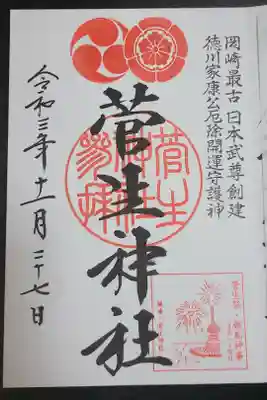 岡崎最古 日本武尊創建
徳川家康公厄除開運守護神
菅生神社
令和三年十一月二十七日